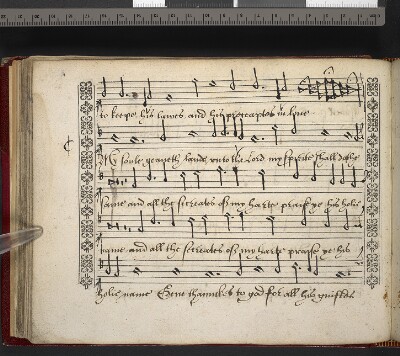 to keepe his lawes and his preceaptes in lyue
My soule geaveth laude unto the Lord my spirite shall do the
same and all the secreates of my harte praise ye his holie
name and all the secreates of my harte praise ye his
holie name Geve thanckes to god for all his guiftes